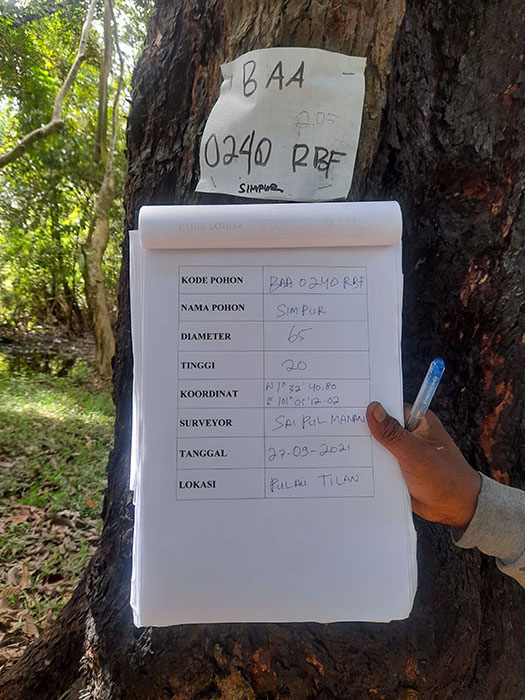 BAA
0240 RBF
SIMPUR
KODE POHON BAA 0240 RBF
NAMA POHON SIMPUR
DIAMETER 65
TINGGI 20
KOORDINAT N 1° 32' 40.80
E 101° 05' 12.02
SURVEYOR SAIPUL MANAN
TANGGAL 27-09-2021
LOKASI PULAU TILAN